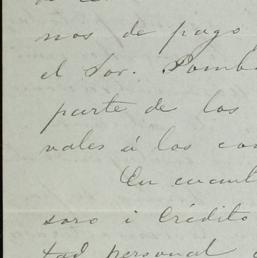 nos de pago
el Sor. Pomb
parte de los
vales á los con
En cuant
soro i Crédito
tad personal